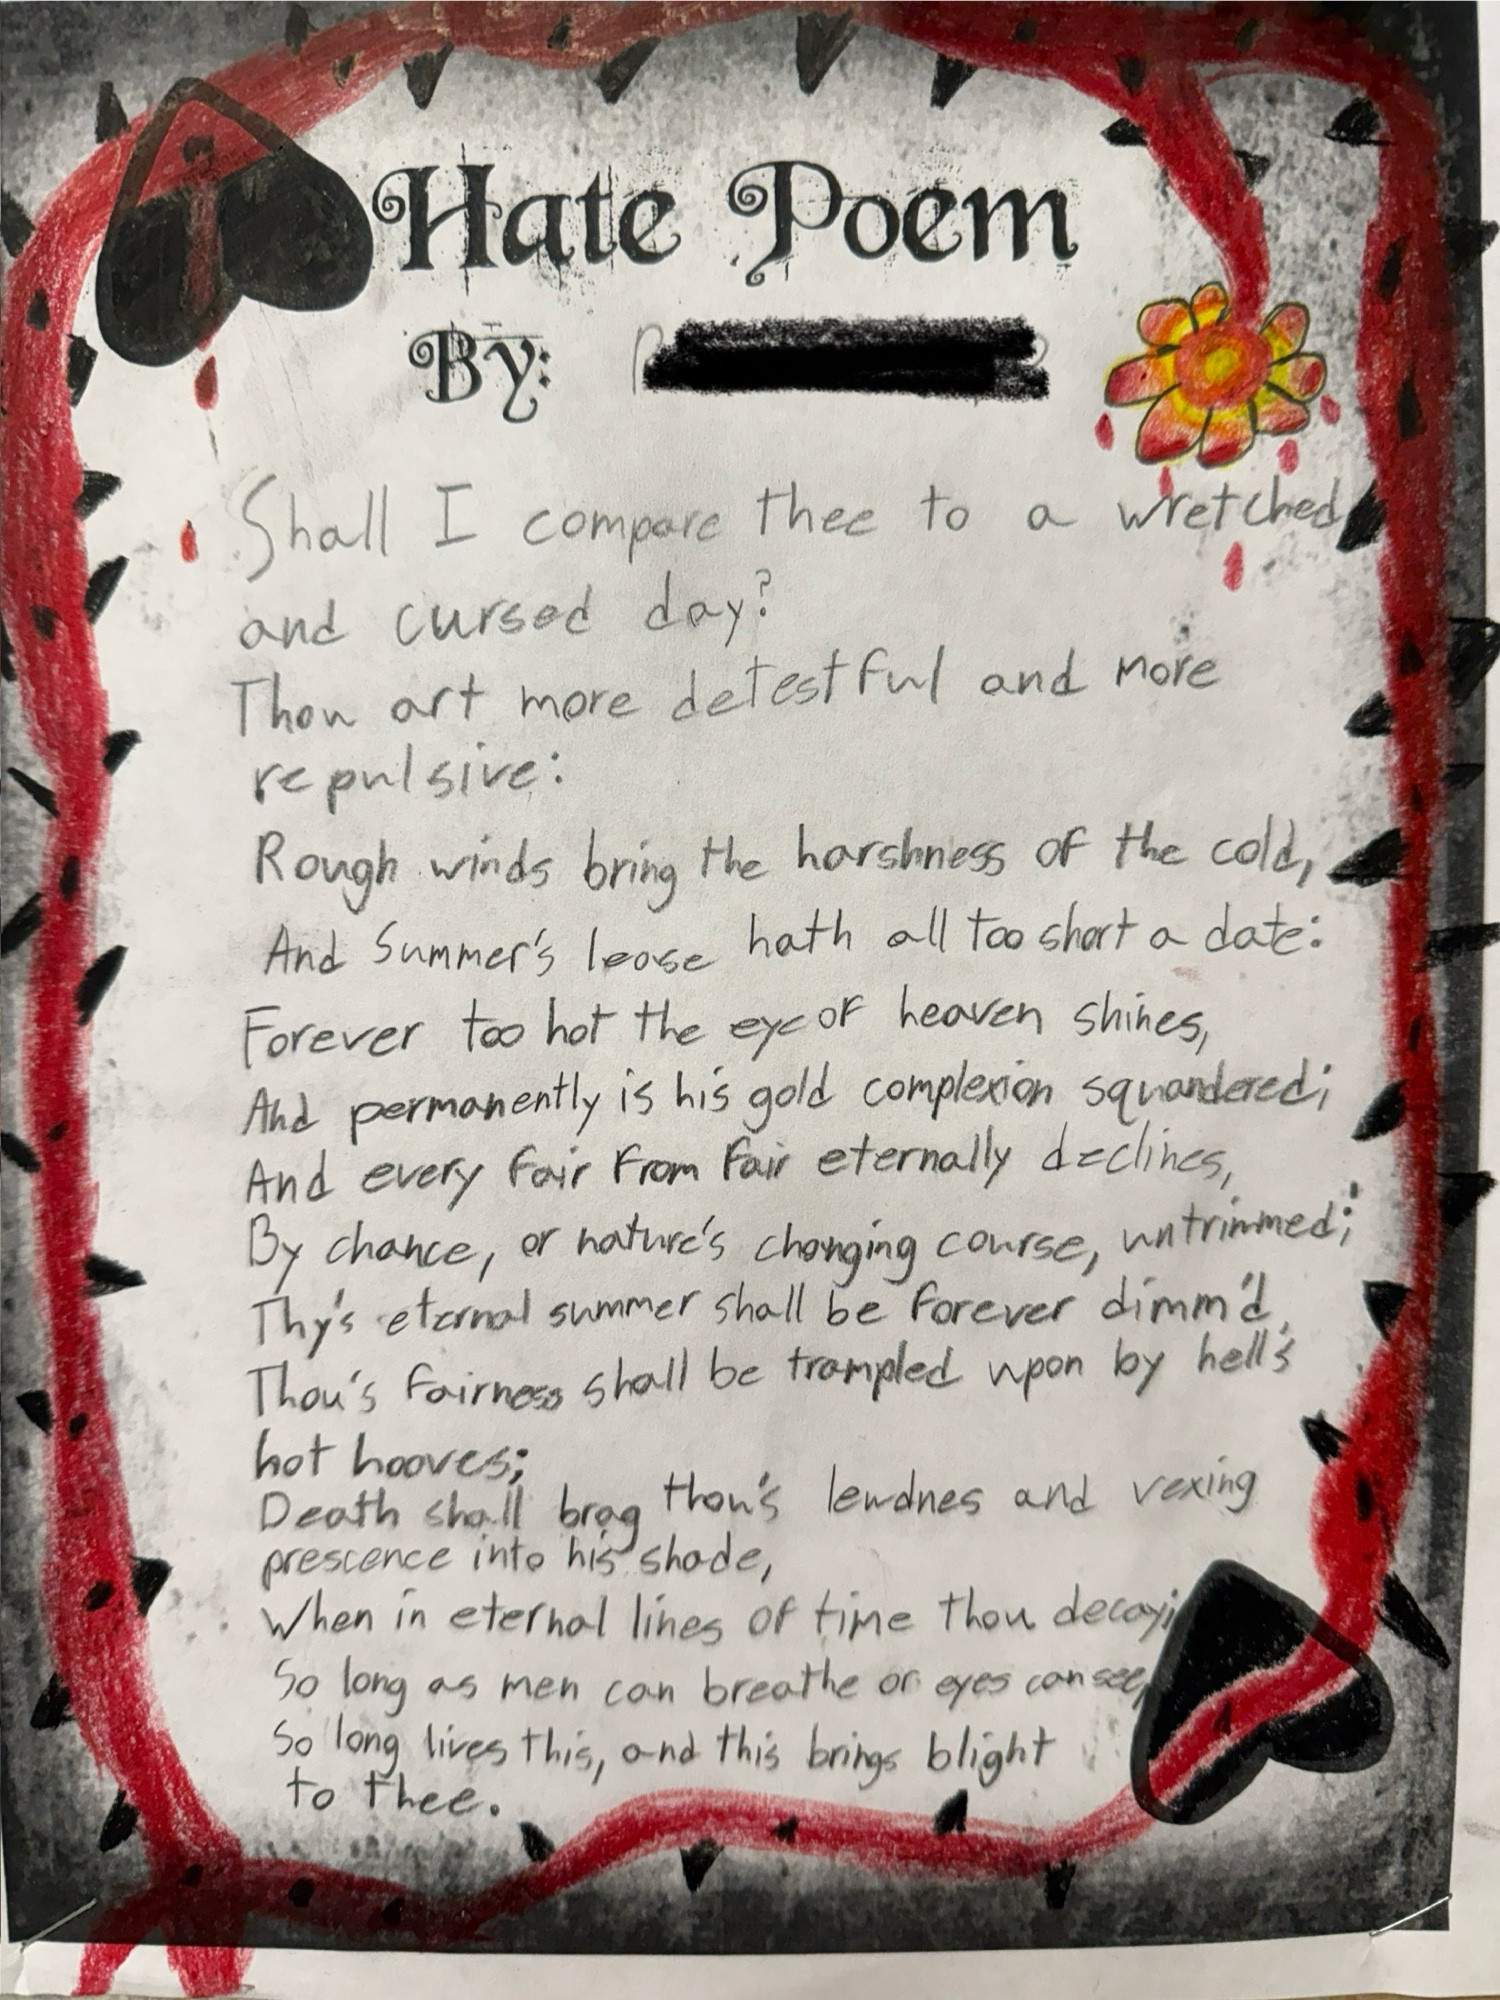 Hate Poem
By:
Shall I compare thee to a wretched
and cursed day?
Thou art more detestful and more
repulsive:
Rough winds bring the harshness of the cold,
And Summer's lease hath all too short a date:
Forever too hot the eye of heaven shines,
And permanently is his gold complexion squandered;
And every fair from fair eternally declines,
By chance, or nature's changing course, untrimmed;
Thy's eternal summer shall be forever dimm'd,
Thou's fairness shall be trampled upon by hell's
hot hooves;
Death shall brag thou's lewdnes and vexing
prescence into his shade,
When in eternal lines of time thou decayi
So long as men can breathe or eyes can see,
So long lives this, and this brings blight
to thee.